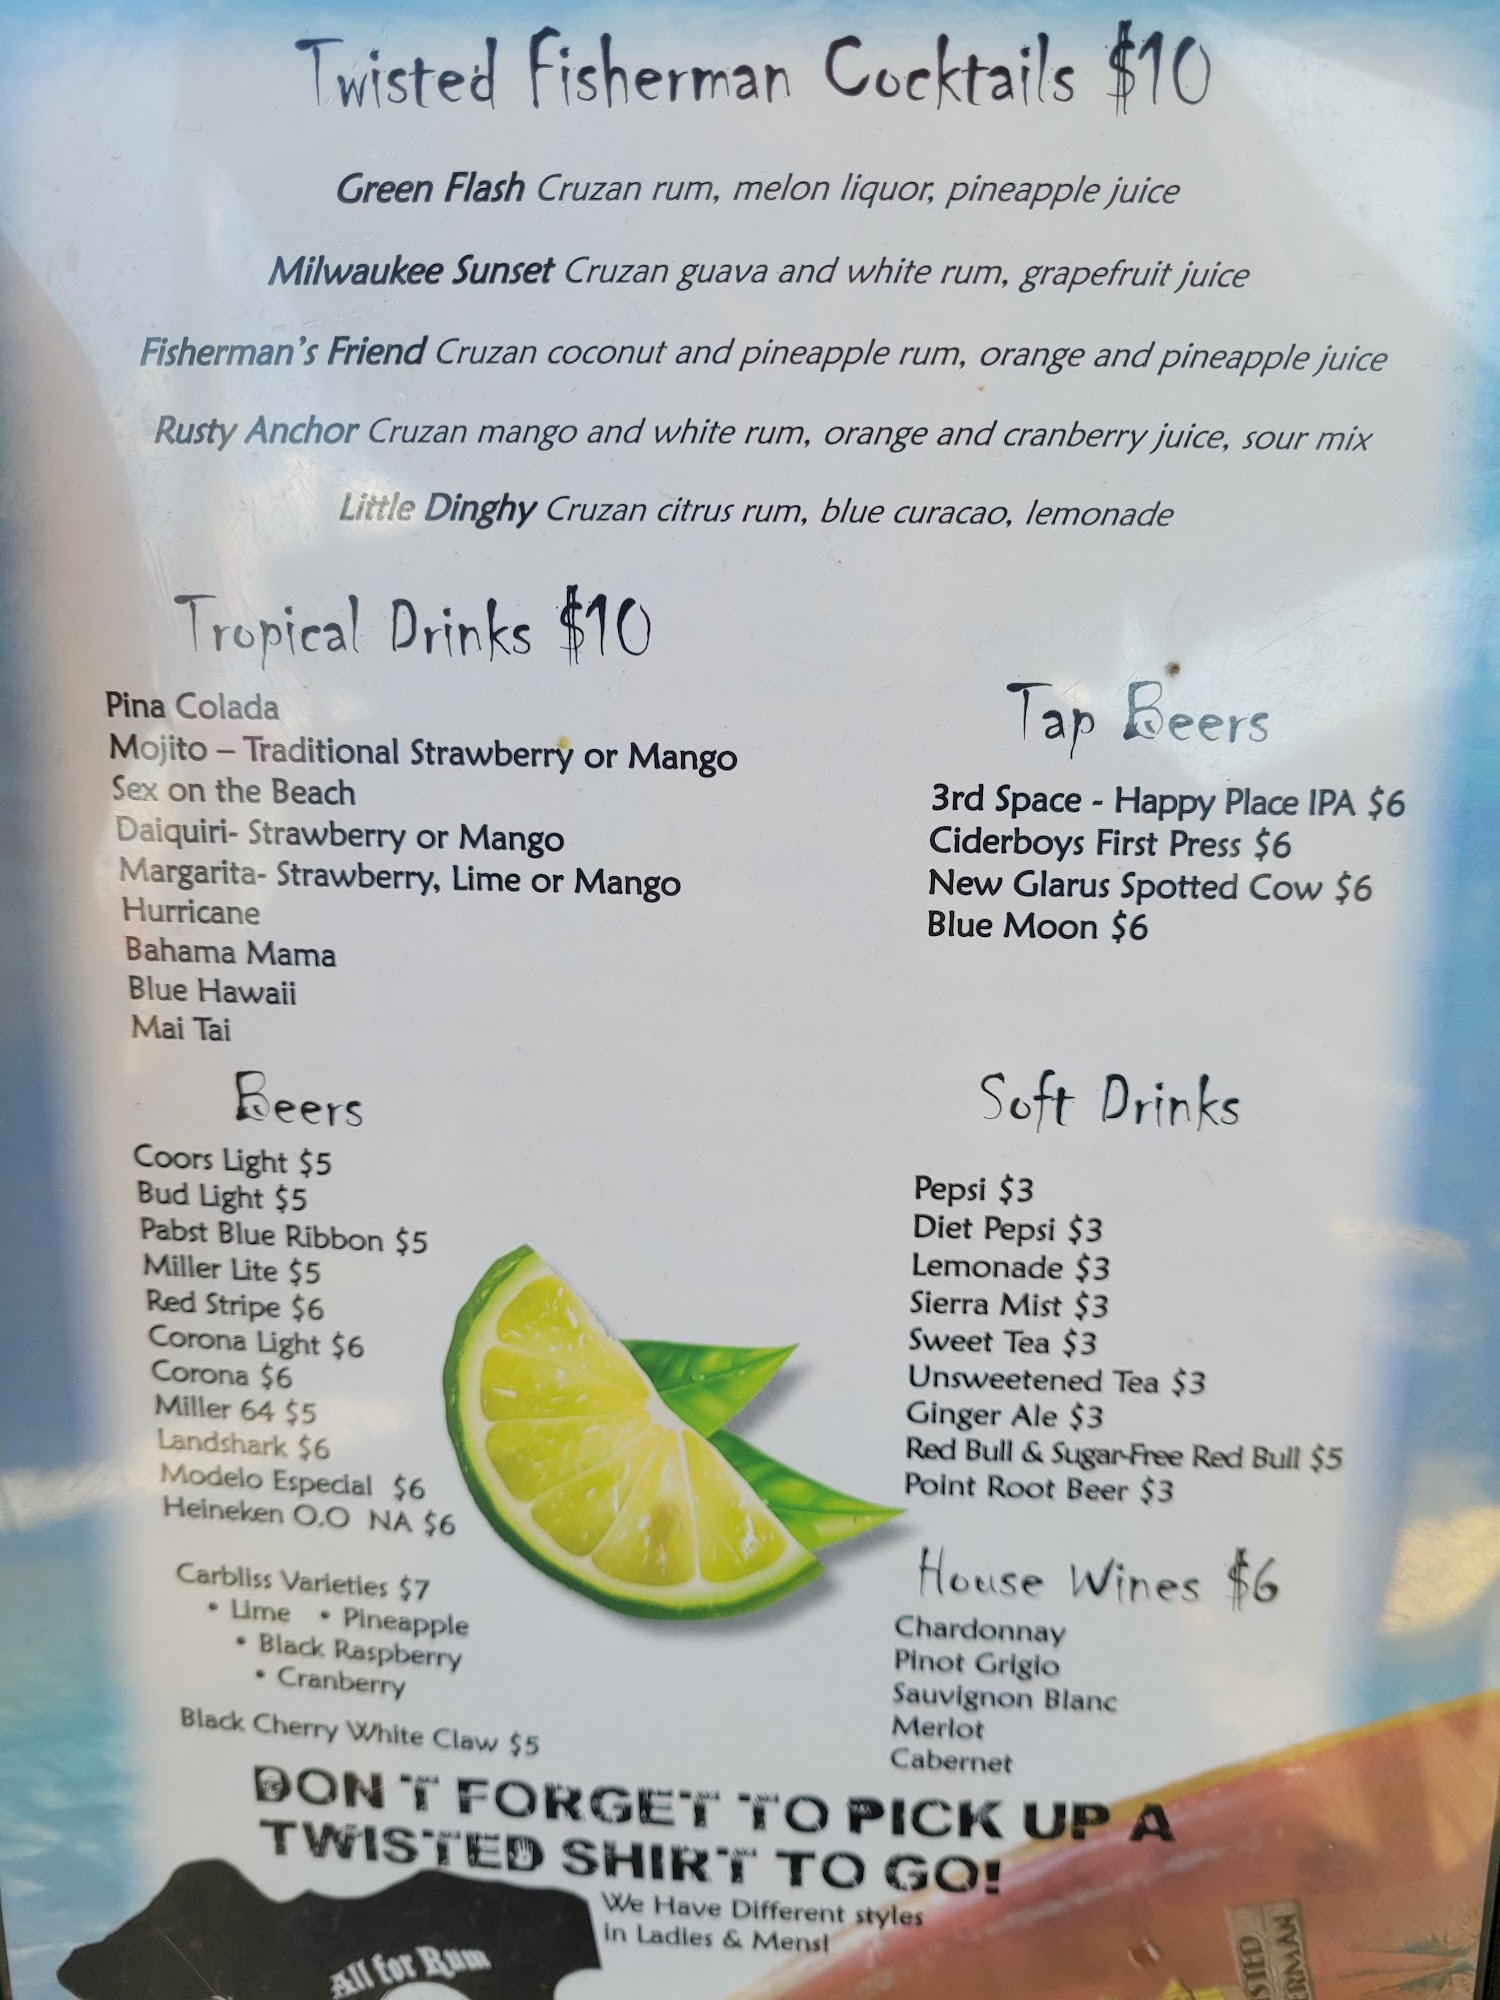 Twisted Fisherman Cocktails $10
Green Flash Cruzan rum, melon liquor, pineapple juice
Milwaukee Sunset Cruzan guava and white rum, grapefruit juice
Fisherman's Friend Cruzan coconut and pineapple rum, orange and pineapple juice
Rusty Anchor Cruzan mango and white rum, orange and cranberry juice, sour mix
Little Dinghy Cruzan citrus rum, blue curacao, lemonade
Tropical Drinks $10
Pina Colada
Mojito – Traditional Strawberry or Mango
Sex on the Beach
Daiquiri- Strawberry or Mango
Margarita- Strawberry, Lime or Mango
Hurricane
Bahama Mama
Blue Hawaii
Mai Tai
Tap Beers
3rd Space - Happy Place IPA $6
Ciderboys First Press $6
New Glarus Spotted Cow $6
Blue Moon $6
Beers
Coors Light $5
Bud Light $5
Pabst Blue Ribbon $5
Miller Lite $5
Red Stripe $6
Corona Light $6
Corona $6
Miller 64 $5
Landshark $6
Modelo Especial $6
Heineken O.O NA $6
Carbliss Varieties $7
• Lime • Pineapple
• Black Raspberry
• Cranberry
Black Cherry White Claw $5
Soft Drinks
Pepsi $3
Diet Pepsi $3
Lemonade $3
Sierra Mist $3
Sweet Tea $3
Unsweetened Tea $3
Ginger Ale $3
Red Bull & Sugar-Free Red Bull $5
Point Root Beer $3
House Wines $6
Chardonnay
Pinot Grigio
Sauvignon Blanc
Merlot
Cabernet
DON'T FORGET TO PICK UP A
TWISTED SHIRT TO GO!
We Have Different styles
in Ladies & Mens!
All for Rum